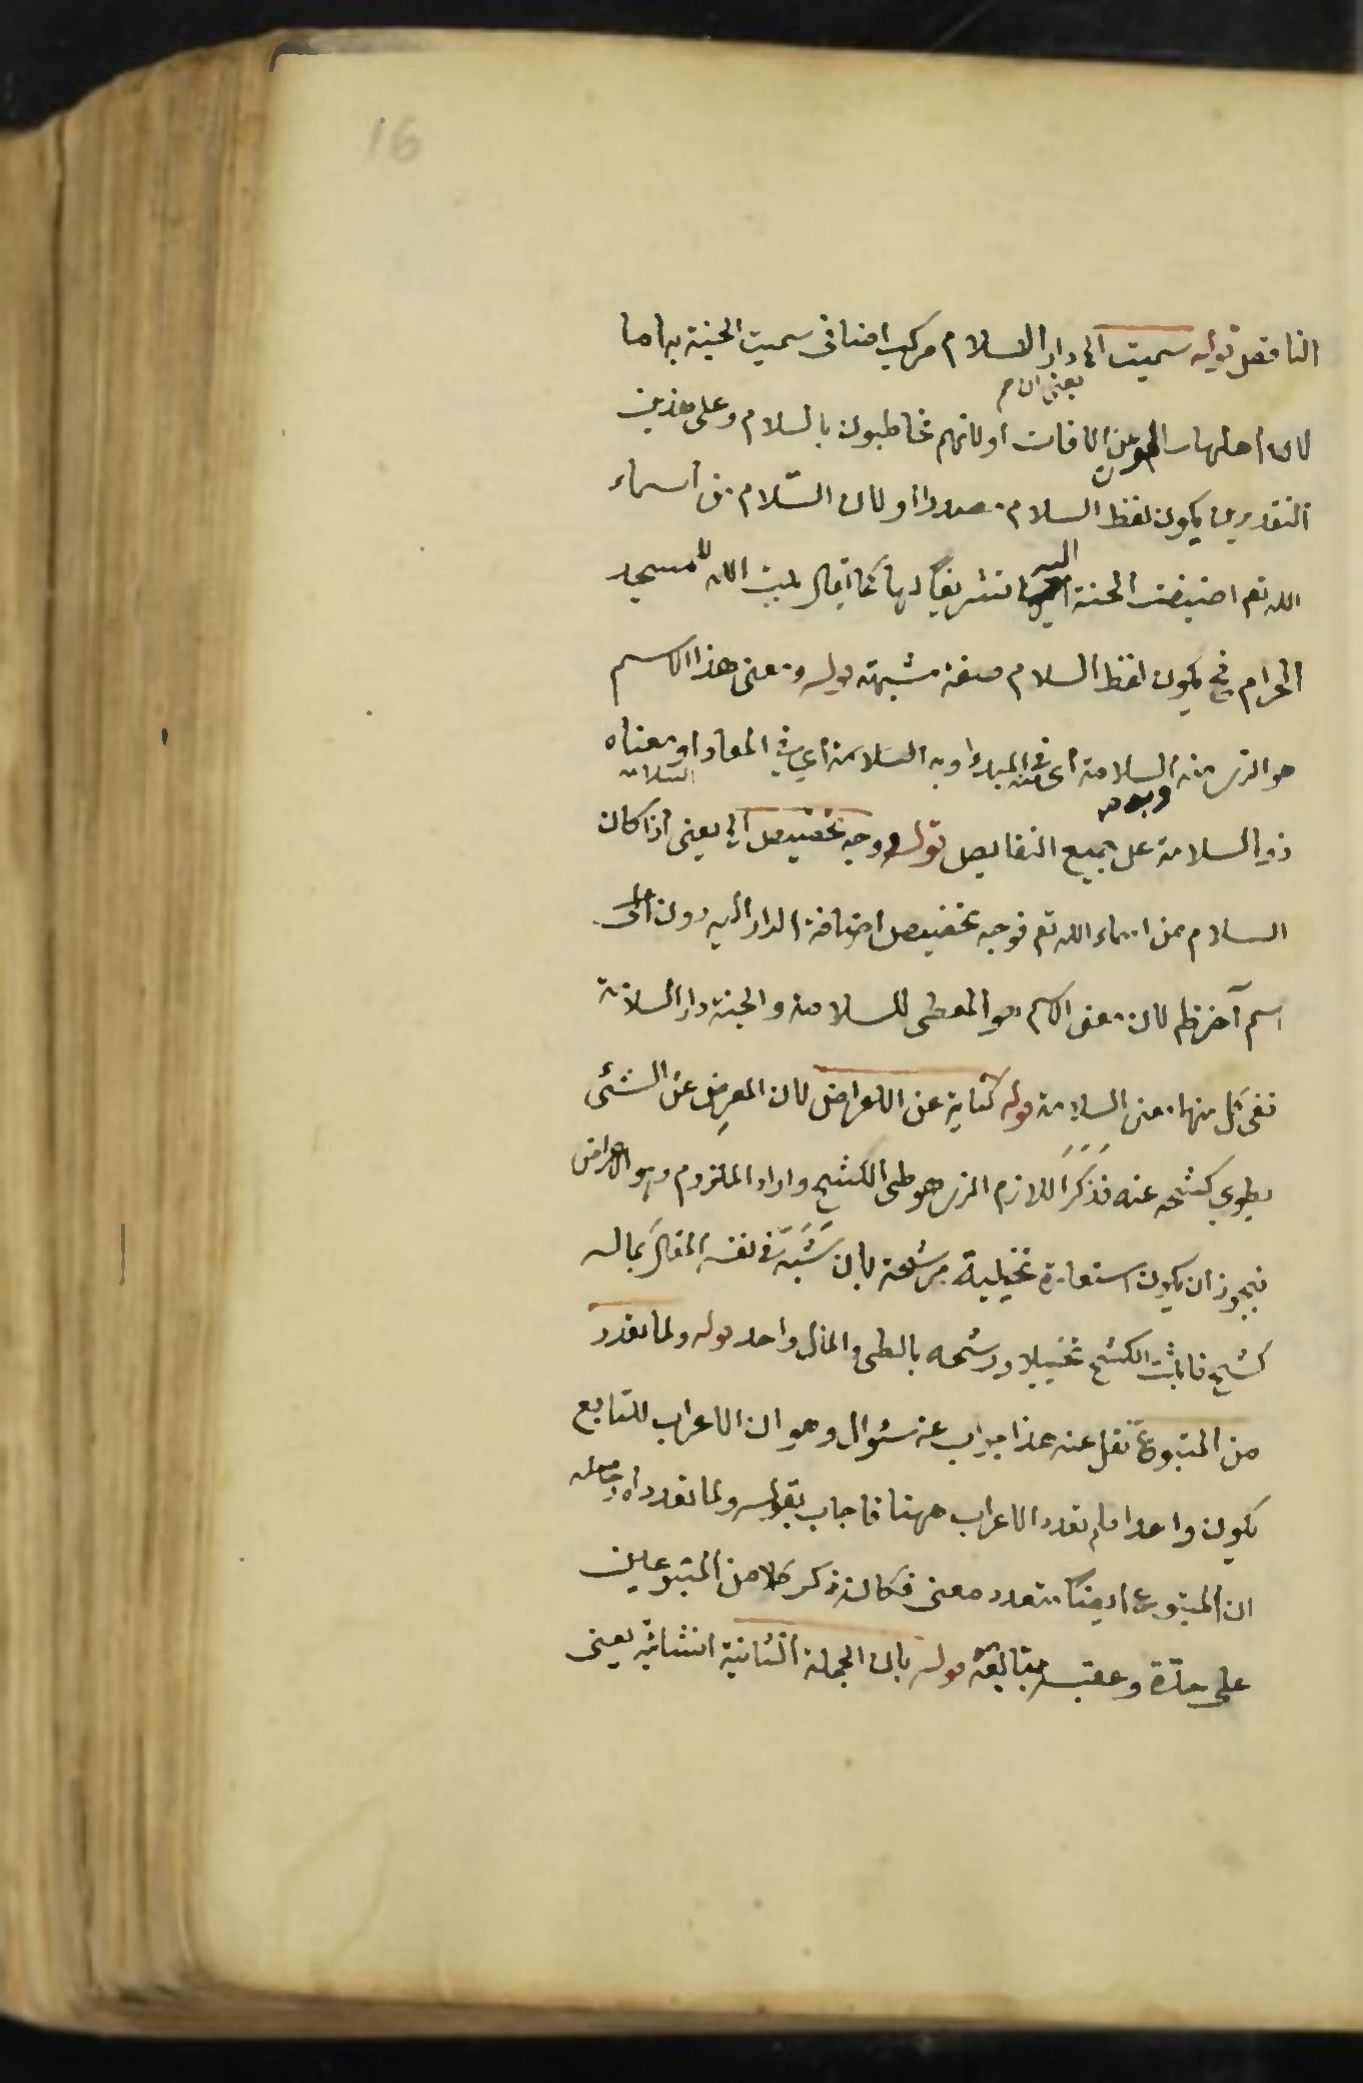 16
الناقص قوله سميت الخ دار السلام مركب اضافى سميت الجنة به اما
يعنى ان
لان اهلها سالمون عن الافات او لانهم يخاطبون بالسلام وعلى هذين
التقديرين يكون لفظ السلام مصدرا او لان السّلام من اسماء
الله تع اضيفت الجنة اليه تشريفا لها كما يقال بيت الله للمسجد
الحرام فح يكون لفظ السلام صفة مشبهة قوله ومعنى هذا الاسم
هو الذى منه السلامة اى فى المبدا وبه السلامة اي في المعاد او معناه
ذو السلامة عن جميع النقايص قوله ووجه تخصيص الخ يعنى اذا كان
السلام من اسماء الله تع فوجه تخصيص اضافة الدار اليه دون
اسم آخر ظ لان معنى الاسم هو المعطى للسلامة والجنة دار السلامة
ففى كل منها معنى السلامة قوله كناية عن الاعراض لان المعرض عن الشئ
يطوي كشحه عنه فذكر اللازم الذى هو طى الكشح واراد الملزوم وهو الاعراض
فيجوز ان يكون استعارة تخيلية مرشحة بان شَبَّهَ فى نفسه المقال بما له
كشح فاثبت الكشح تخييلا ورشحه بالطى والمال واحد قوله ولما تعدد
من المتبوع نقل عنه هذا جواب عن سئوال وهو ان الاعراب للتابع
يكون واحدا فلم تعدد الاعراب ههنا فاجاب بقوله ولما تعدد اه حاصله
ان المتبوع ايضا متعدد معنى فكانه ذكر كلا من المتبوعين
على حدّة وعقبه بتابعه قوله بان الجملة الثانية انشائية يعنى